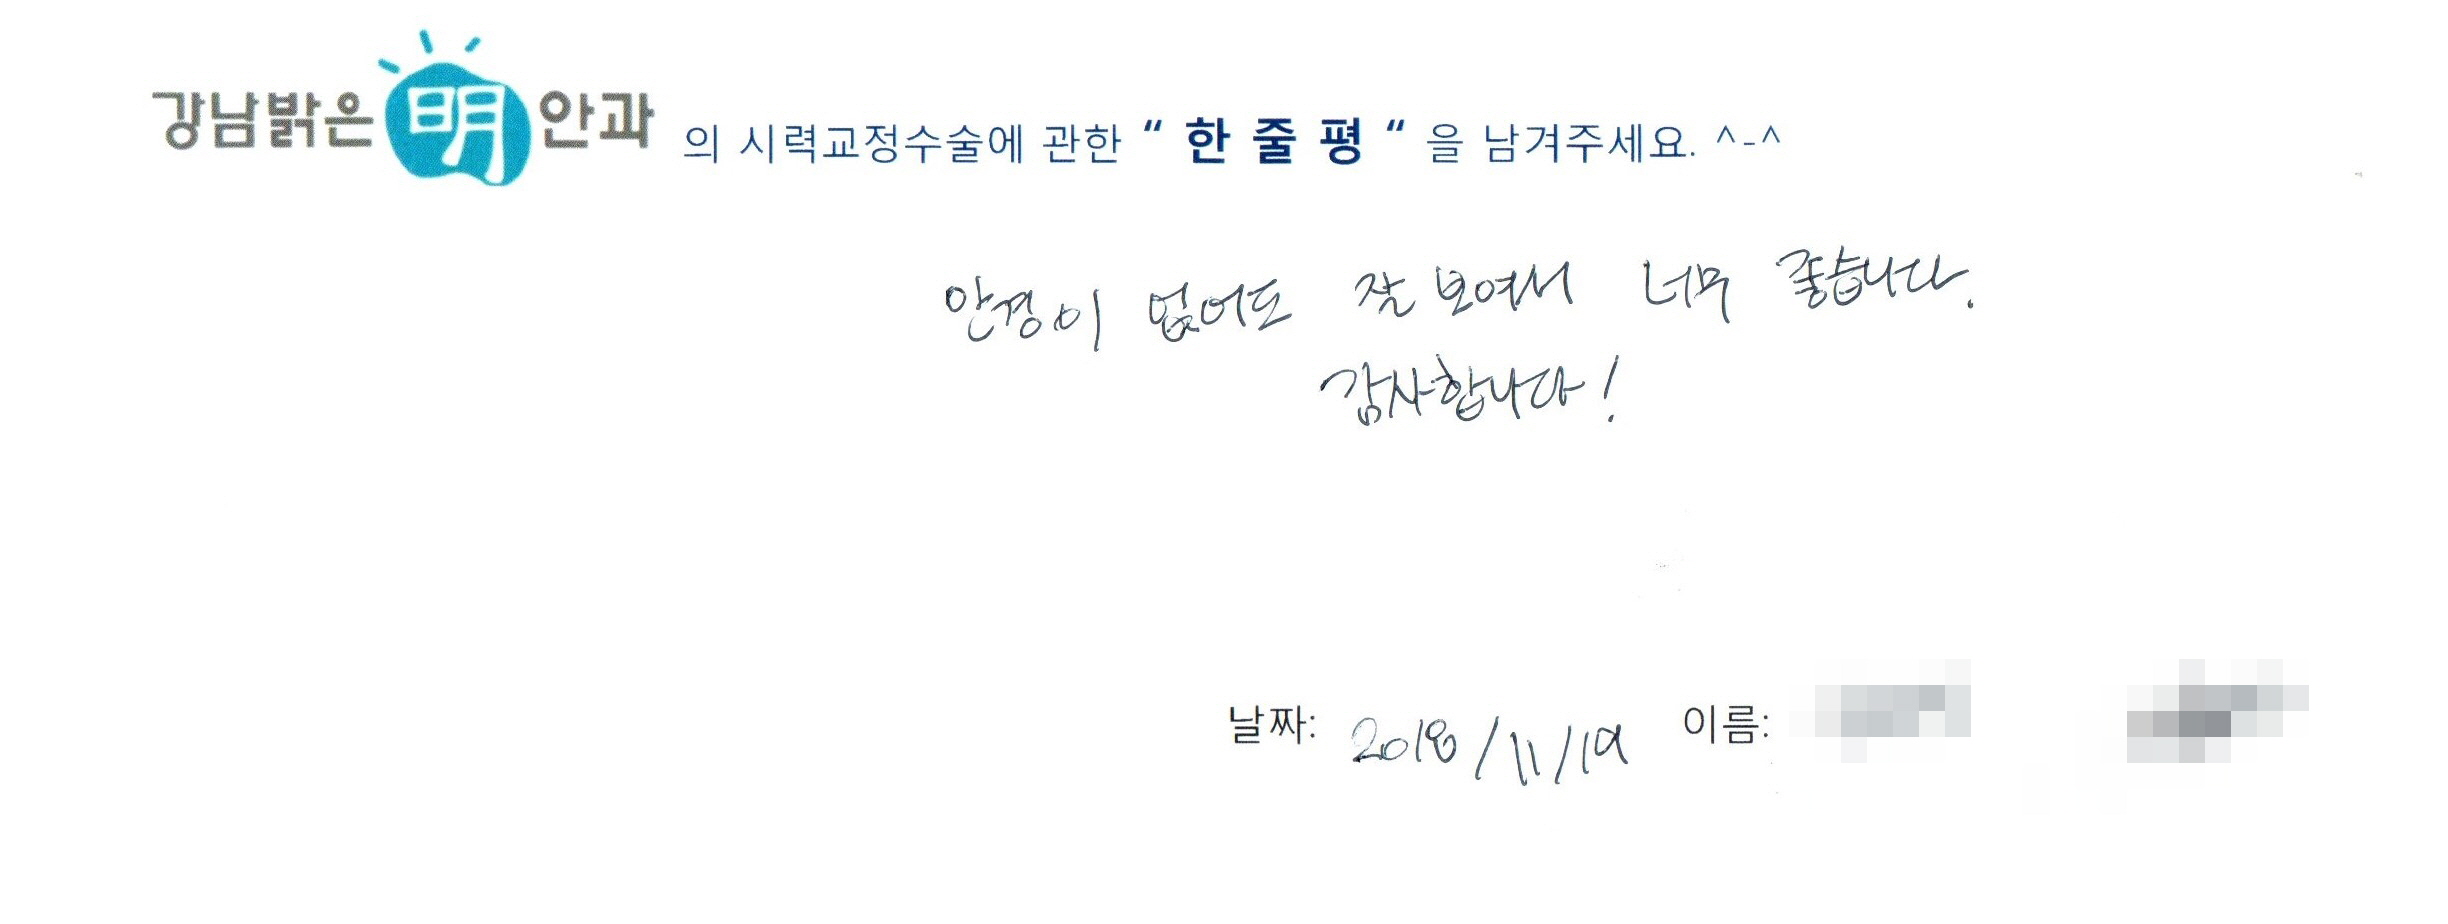 강남밝은 明 안과 의 시력교정수술에 관한 “ 한 줄 평 “ 을 남겨주세요. ^-^
안경이 없어도 잘 보여서 너무 좋습니다.
감사합니다!
날짜: 2018/11/19 이름: